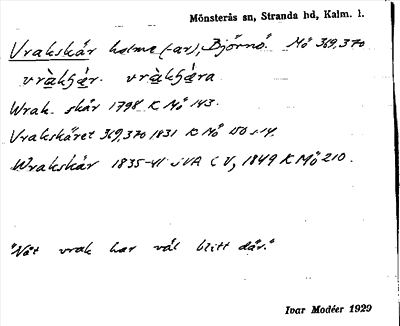 Mönsterås sn, Stranda hd, Kalm. l.
Vrakskär holme (-ar), Björnö. Mö 369,370
vràkʃǟr. vràkʃǟra
Wrak. skär 1798 K Mö 143.
Vrakskäret 369,370 1831 K Mö 150 s 14.
Wrakskär 1835-41 JVA C V, 1849 K Mö 210.
"Nåt vrak har väl blitt där."
Ivar Modéer 1929